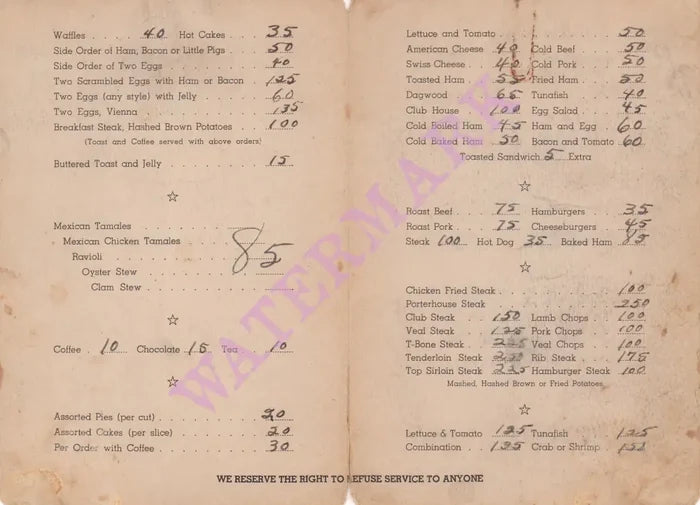 Waffles . . . 40 Hot Cakes . . 35
Side Order of Ham, Bacon or Little Pigs . . 50
Side Order of Two Eggs . . . . . . 40
Two Scrambled Eggs with Ham or Bacon . 125
Two Eggs (any style) with Jelly . . . . 60
Two Eggs, Vienna . . . . . . . . 135
Breakfast Steak, Hashed Brown Potatoes . . 100
(Toast and Coffee served with above orders)
Buttered Toast and Jelly . . . . . . 15
☆
Mexican Tamales
Mexican Chicken Tamales
Ravioli
Oyster Stew
Clam Stew
85
☆
Coffee . 10 Chocolate 15 Tea . . 10
☆
Assorted Pies (per cut) . . . . . . 20
Assorted Cakes (per slice) . . . . . 20
Per Order with Coffee . . . . . . 30
Lettuce and Tomato . . . . . . . 50
American Cheese 40 Cold Beef . . . 50
Swiss Cheese . . 40 Cold Pork . . . 50
Toasted Ham . . 55 Fried Ham . . . 50
Dagwood . . 65 Tunafish . . . 40
Club House . . 100 Egg Salad . . . 45
Cold Boiled Ham . 45 Ham and Egg . . 60
Cold Baked Ham . 50 Bacon and Tomato 60
Toasted Sandwich 5 Extra
☆
Roast Beef . . . 75 Hamburgers . . 35
Roast Pork . . . 75 Cheeseburgers . . 45
Steak 100 Hot Dog 35 Baked Ham . 85
☆
Chicken Fried Steak . . . . . . . 100
Porterhouse Steak . . . . . . . 250
Club Steak . . 150 Lamb Chops . . 100
Veal Steak . . 125 Pork Chops . . 100
T-Bone Steak . . 225 Veal Chops . . 100
Tenderloin Steak Rib Steak . . . 175
Top Sirloin Steak 225 Hamburger Steak . 100
Mashed, Hashed Brown or Fried Potatoes
☆
Lettuce & Tomato . 125 Tunafish . . . 125
Combination . . 135 Crab or Shrimp .
WE RESERVE THE RIGHT TO REFUSE SERVICE TO ANYONE
WATERMARK